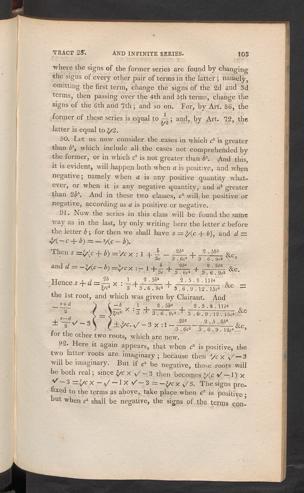 TRACT 25. AND INFINITE SERIES. 103
where the signs of the former series are found by changing
the signs of every other pair of terms in the latter; namely,
omitting the first term, change the signs of the 2d and 3d
terms, then passing over the 4th and 5th terms, change the
signs of the 6th and 7th; and so on. For, by Art. 86, the
former of these series is equal to 1/∛2; and, by Art. 72, the
latter is equal to ∛2.
90. Let us now consider the cases in which c² is greater
than b², which include all the cases not comprehended by
the former, or in which c² is not greater than b². And this,
it is evident, will happen both when a is positive, and when
negative; namely when a is any positive quantity what-
ever, or when it is any negative quantity, and a³ greater
than 2b². And in these two classes, c² will be positive or
negative, according as a is positive or negative.
91. Now the series in this class will be found the same
way as in the last, by only writing here the letter c before
the letter b; for then we shall have s = ∛(c + b), and d =
∛(−c + b) = −∛(c − b).
Then s = ∛(c + b) = ∛c × : 1 + b/3c − 2b²/3.6c² + 2.5b³/3.6.9c³ &c,
and d = −∛(c−b) = ∛c × : −1 + b/3c + 2b²/3.6c² + 2.5b³/3.6.9c³ &c.
Hence s + d = 2b/∛c² × : 1/3 + 2.5b²/3.6.9c² + 2.5.8.11b⁴/3.6.9.12.15c⁴ &c =
the 1st root, and which was given by Clairaut. And
for the other two roots, which are new.
92. Here it again appears, that when c² is positive, the
two latter roots are imaginary; because then ∛c × √−3
will be imaginary. But if c² be negative, those roots will
be both real; since ∛c × √−3 then becomes ∛(c√−1) ×
√−3 = ∛c × −√−1 × √−3 = −∛c × √3. The signs pre-
fixed to the terms as above, take place when c² is positive;
but when c² shall be negative, the signs of the terms con-